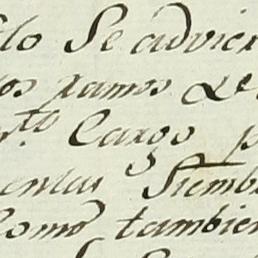 lo Se advier
os ramos de
to Cargo p
entas Siemb
Como tambien